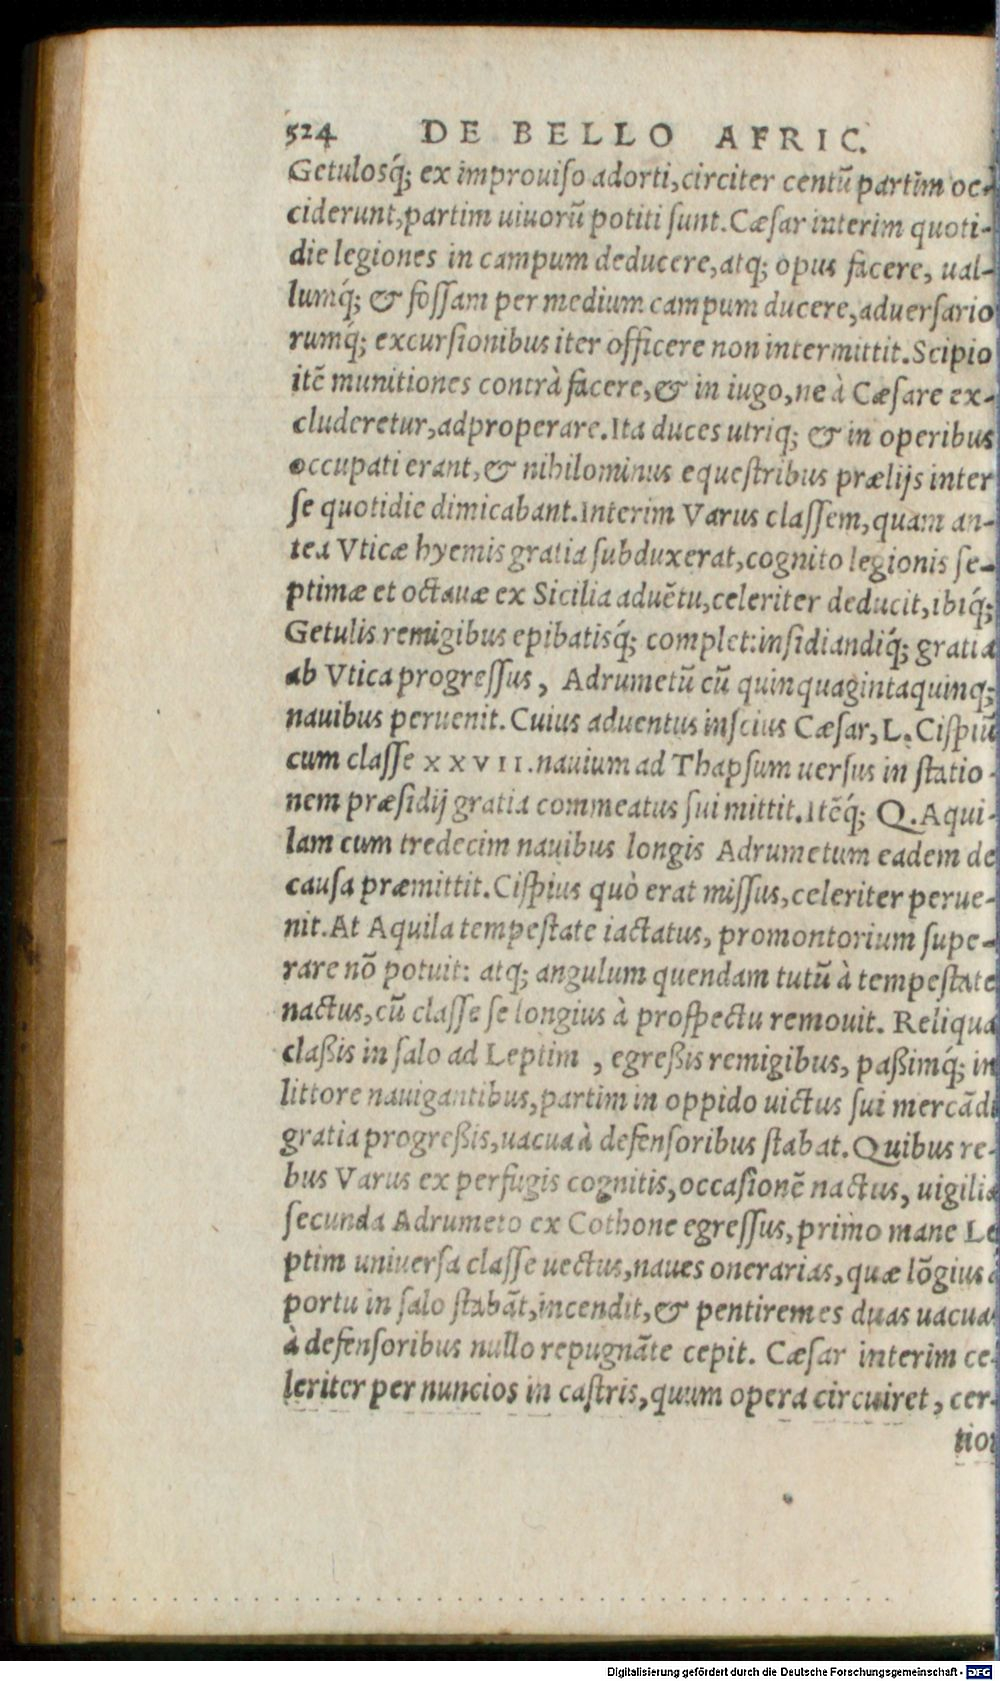 524 DE BELLO AFRIC.
Getulosq́; ex improuiſo adorti,circiter centũ partim oc-
ciderunt,partim uiuorũ potiti ſunt.Cæſar interim quoti-
die legiones in campum deducere,atq; opus facere, ual-
lumq́; & foſſam per medium campum ducere,aduerſario
rumq́; excurſionibus iter officere non intermittit.Scipio
itẽ munitiones contrà facere,& in iugo,ne à Cæſare ex-
cluderetur,adproperare.Ita duces utriq; & in operibus
occupati erant,& nihilominus equeſtribus prælijs inter
ſe quotidie dimicabant.Interim Varus claſſem,quam an-
tea Vticæ hyemis gratia ſubduxerat,cognito legionis ſe-
ptimæ et octauæ ex Sicilia aduẽtu,celeriter deducit,ibiq́;
Getulis remigibus epibatisq́; complet:inſidiandiq́; gratia
ab Vtica progreſſus, Adrumetũ cũ quinquagintaquinq;
nauibus peruenit. Cuius aduentus inſcius Cæſar, L. Ciſpiũ
cum claſſe XXVII.nauium ad Thapſum uerſus in ſtatio-
nem præſidij gratia commeatus ſui mittit.Itẽq́; Q.Aqui-
lam cum tredecim nauibus longis Adrumetum eadem de
cauſa præmittit.Ciſpius quò erat miſſus,celeriter perue-
nit.At Aquila tempeſtate iactatus, promontorium ſupe-
rare nõ potuit: atq; angulum quendam tutũ à tempeſtate
nactus,cũ claſſe ſe longius à proſpectu remouit. Reliqua
claßis in ſalo ad Leptim , egreßis remigibus, paßimq́; in
littore nauigantibus,partim in oppido uictus ſui mercãdi
gratia progreßis,uacua à defenſoribus ſtabat.Quibus re-
bus Varus ex perfugis cognitis,occaſionẽ nactus, uigilia
ſecunda Adrumeto ex Cothone egreſſus,primo mane Le
ptim uniuerſa claſſe uectus,naues onerarias,quæ lõgius à
portu in ſalo ſtabãt,incendit,& pentiremes duas uacuas
à defenſoribus nullo repugnãte cepit. Cæſar interim ce-
leriter per nuncios in caſtris,quum opera circuiret, cer-
tior
Digitalisierung gefördert durch die Deutsche Forschungsgemeinschaft - DFG